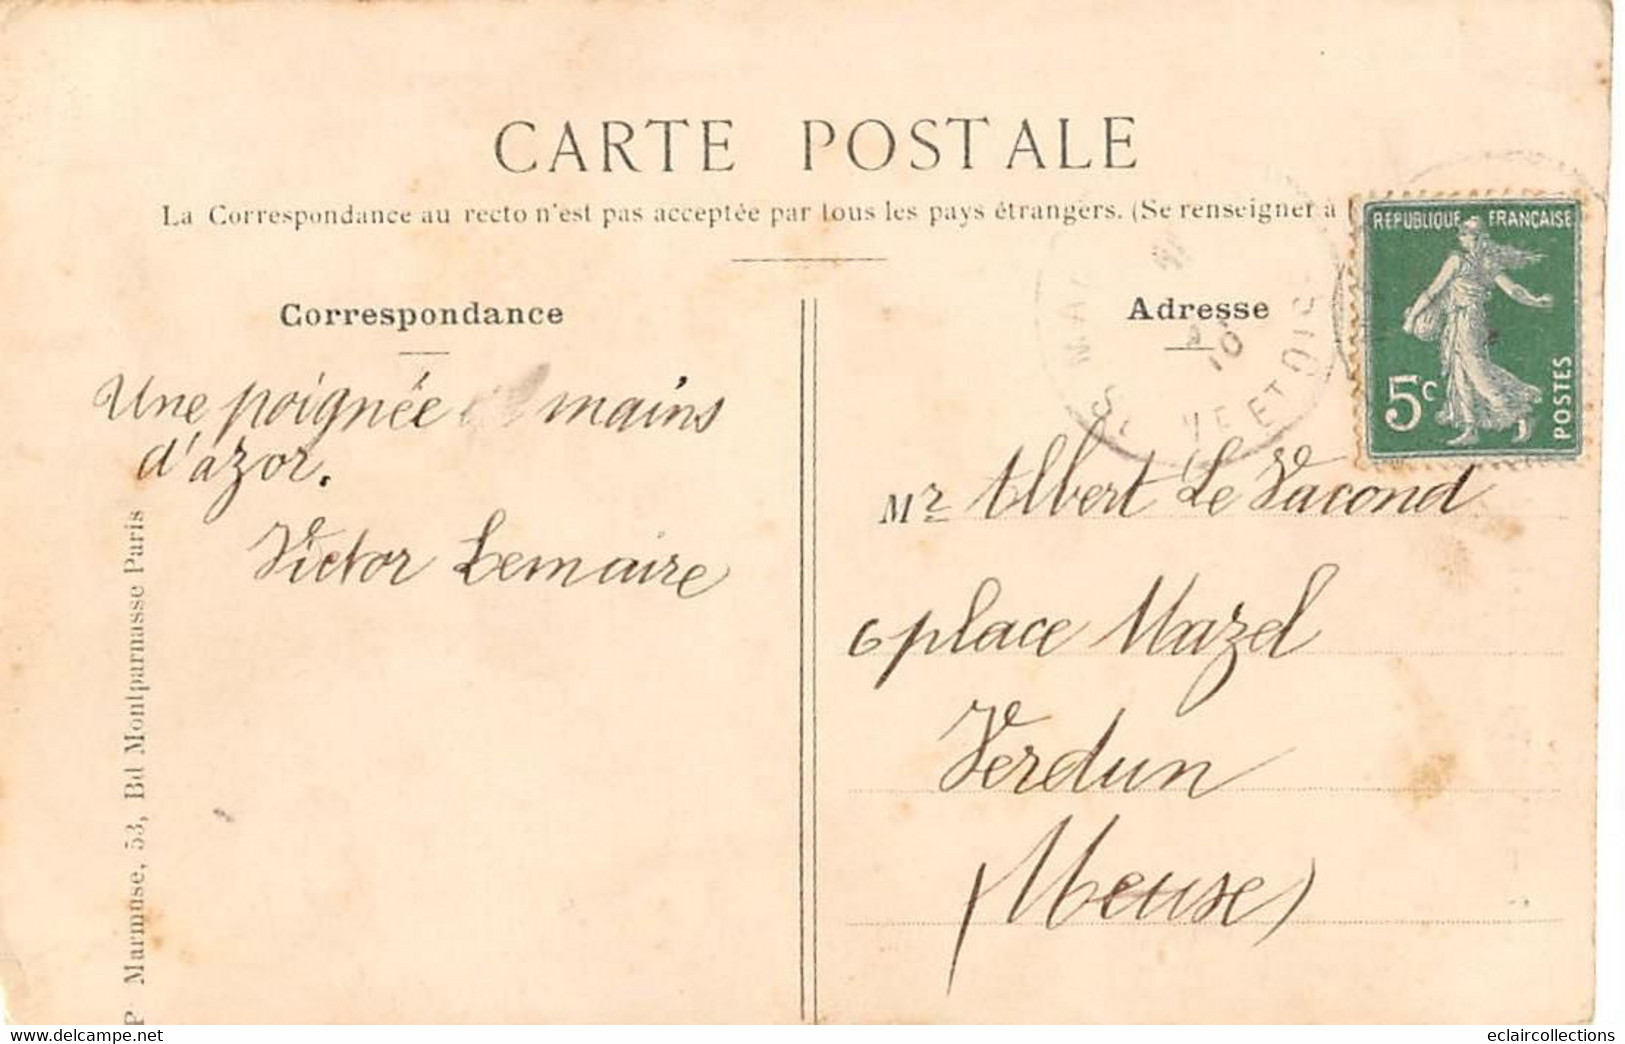 CARTE POSTALE
La Correspondance au recto n'est pas acceptée par tous les pays étrangers. (Se renseigner à
RÉPUBLIQUE FRANÇAISE
5c
POSTES
Correspondance
Adresse
Une poignée mains
d'azor.
Victor Lemaire
Mr Albert Le Vacond
6 place Mazel
Verdun
(Meuse)
10
ET OISE
P Marmuse, 53, Bd Montparnasse Paris
https://www.delcampe.net
eclaircollections